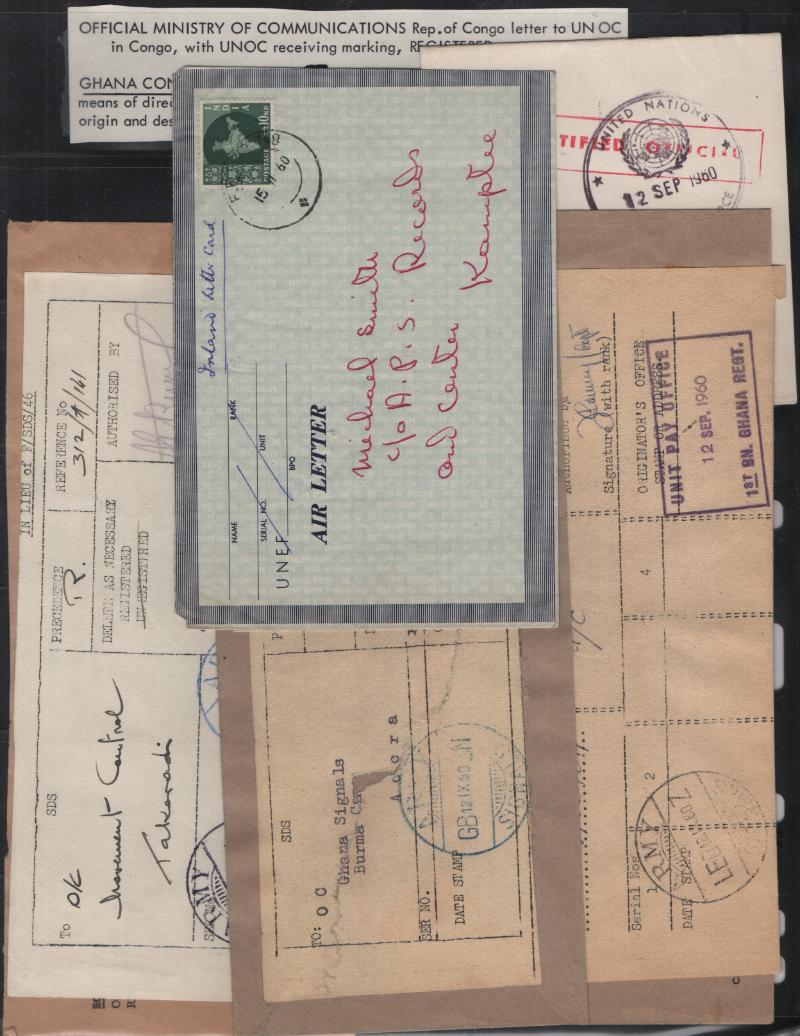 OFFICIAL MINISTRY OF COMMUNICATIONS Rep.of Congo letter to UNOC
in Congo, with UNOC receiving marking, REGISTERED
GHANA CON
means of direc
origin and des
UNITED NATIONS
TIFIED OFFICIAL
12 SEP 1960
INDIA
POSTAGE
10 NP.
15
60
Inland Letter Card
NAME
RANK
SERIAL NO.
UNIT
UNEF
BPO
AIR LETTER
Michael Smith
c/o A.P.S. Records
and Center Kamptee
IN LIEU of F/SDS/46
PRECEDENCE
R.
REFERENCE No
AUTHORISED BY
DELETE AS NECESSARY
REGISTERED
UN-REGISTURED
SDS
To
O/C
Movement Control
Takoradi
ARMY
SDS
TO: O C
Ghana Signals
Burma Ca
Accra
SER NO.
DATE STAMP
ARMY
GB 12 IX 60
SIGNALS
Signature (with rank)
ORIGINATOR'S OFFICE
STAMP OR ADDRESS
UNIT PAY OFFICE
12 SEP. 1960
1ST BN. GHANA REGT.
4
Serial Nos
1
2
DATE STAMP
ARMY
LEO